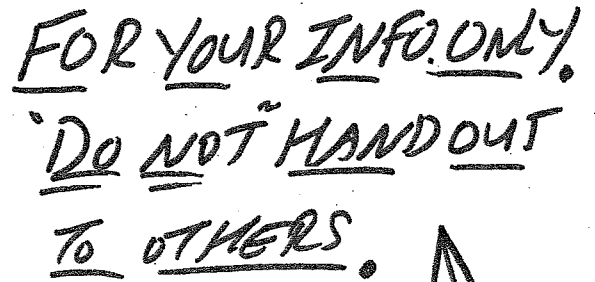 FOR YOUR INFO. ONLY.
"DO NOT" HAND OUT
TO OTHERS.